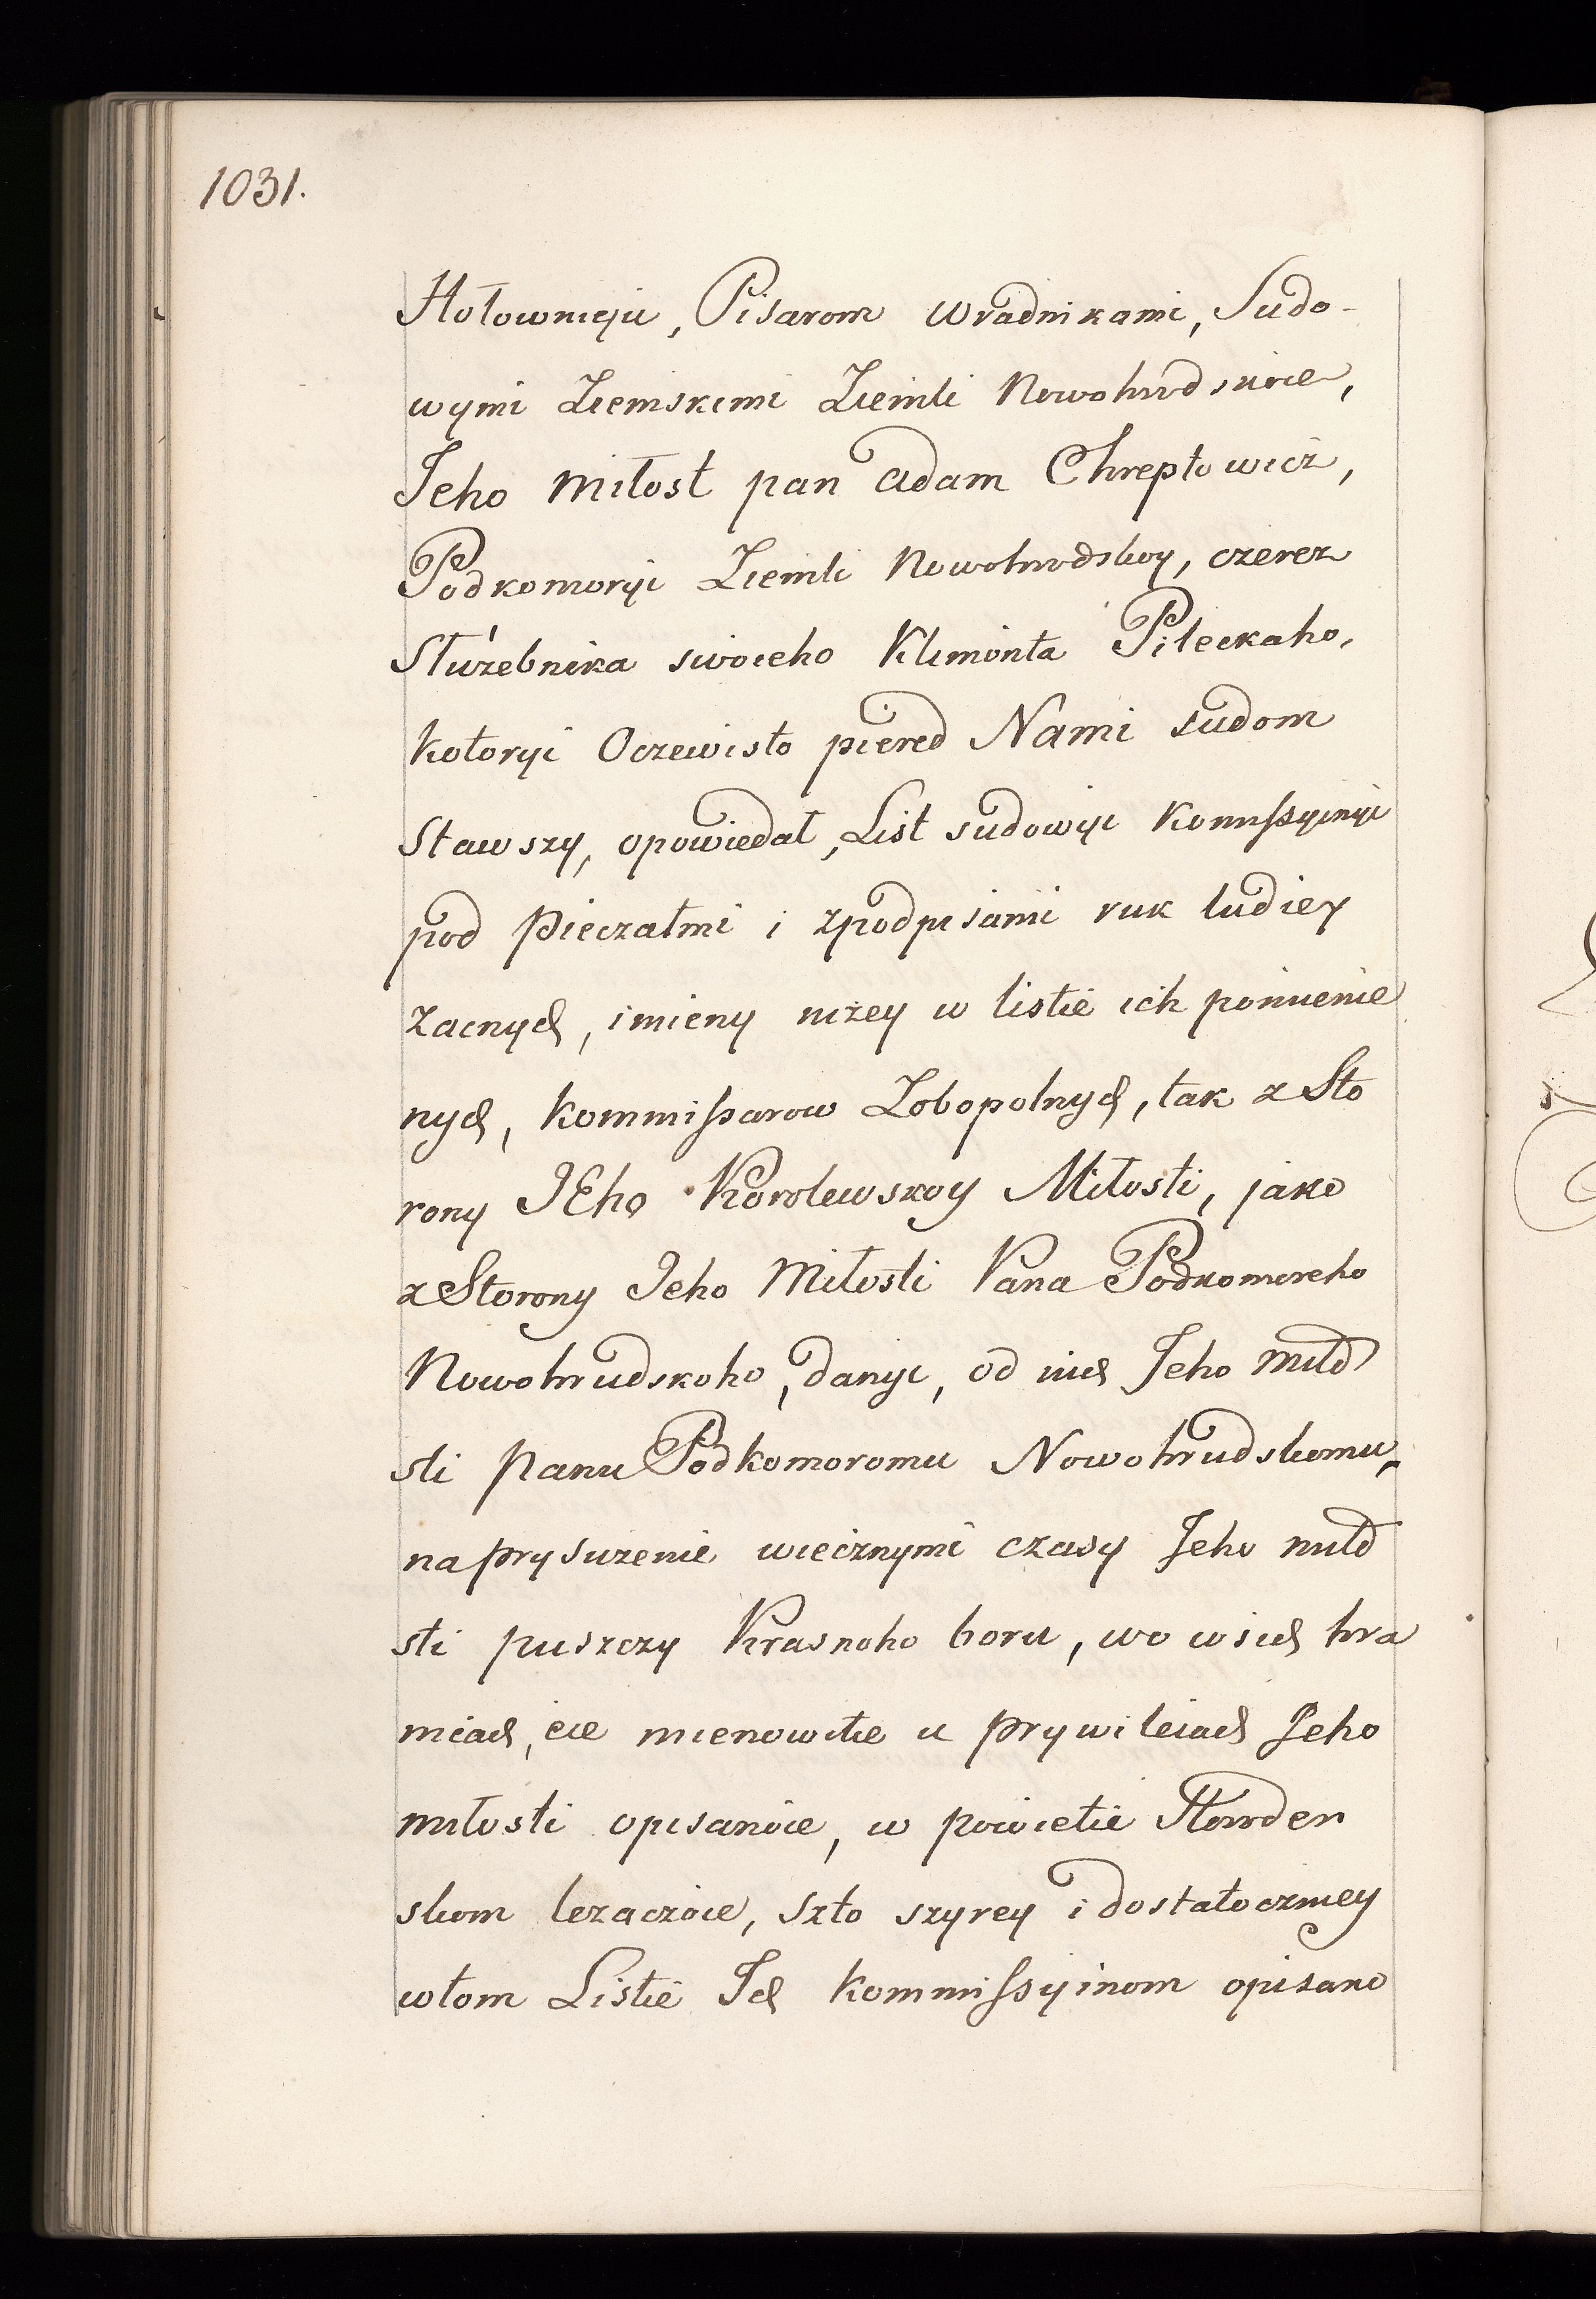 1031.
Hołownieju, Pisarom wradnikami, Sudo-
wymi Ziemskimi Ziemli Nowohrodskoie,
Jeho Miłost pan Adam Chreptowicz,
Podkomoryi Ziemli Nowohrodskoy, czerez
Służebnika swoieho Klimonta Pileckaho,
kotoryi Oczewisto piered Nami sudom
Stawszy, opowiedał, List sudowyi Komissyinyi
pod pieczatmi i zpodpisami ruk ludiey
Zacnych, imieny niżey w listie ich pomienie
nych, Kommissarow Zobopolnych, tak z Sto
rony JEho Korolewskoy Miłosti, jako
z Storony Jeho Miłosti Pana Podkomoreho
Nowohrudskoho, danyi, od nich Jeho miło
sti Panu Podkomoromu Nowohrudskomu,
na prysużenie wiecznymi czasy Jeho miło
sti puszczy Krasnoho boru, wo wsich hra
nicach, eie mienowitie u prywileiach Jeho
miłosti opisanoie, w powietie Horoden
skom lezaczoie, szto szyrey i dostatoczniey
wtom Listie Ich Kommissyinom opisano